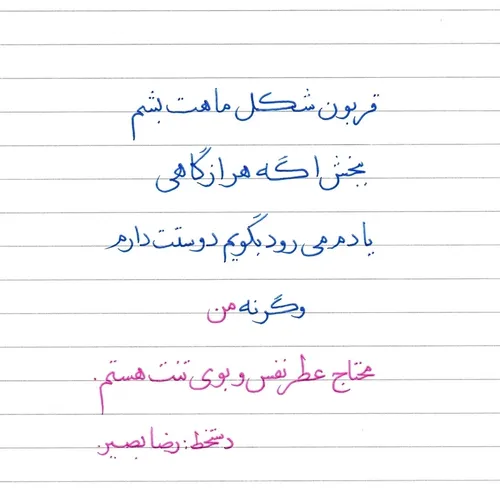 قربون شکل ماهت بشم
ببخش اگه هر از گاهی
یادم می رود بگویم دوستت دارم
وگرنه من
محتاج عطر نفس و بوی تنت هستم.
دستخط: رضا بصیر